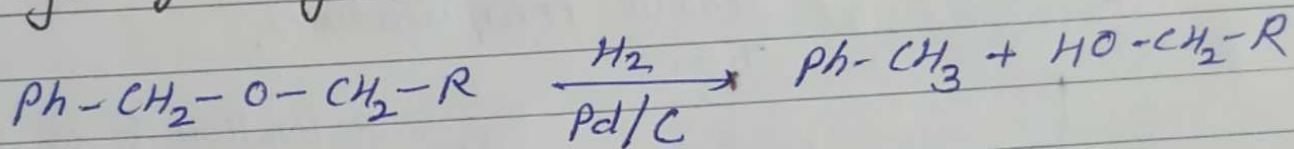 Ph-CH₂-O-CH₂-R →[H₂][Pd/C] Ph-CH₃ + HO-CH₂-R